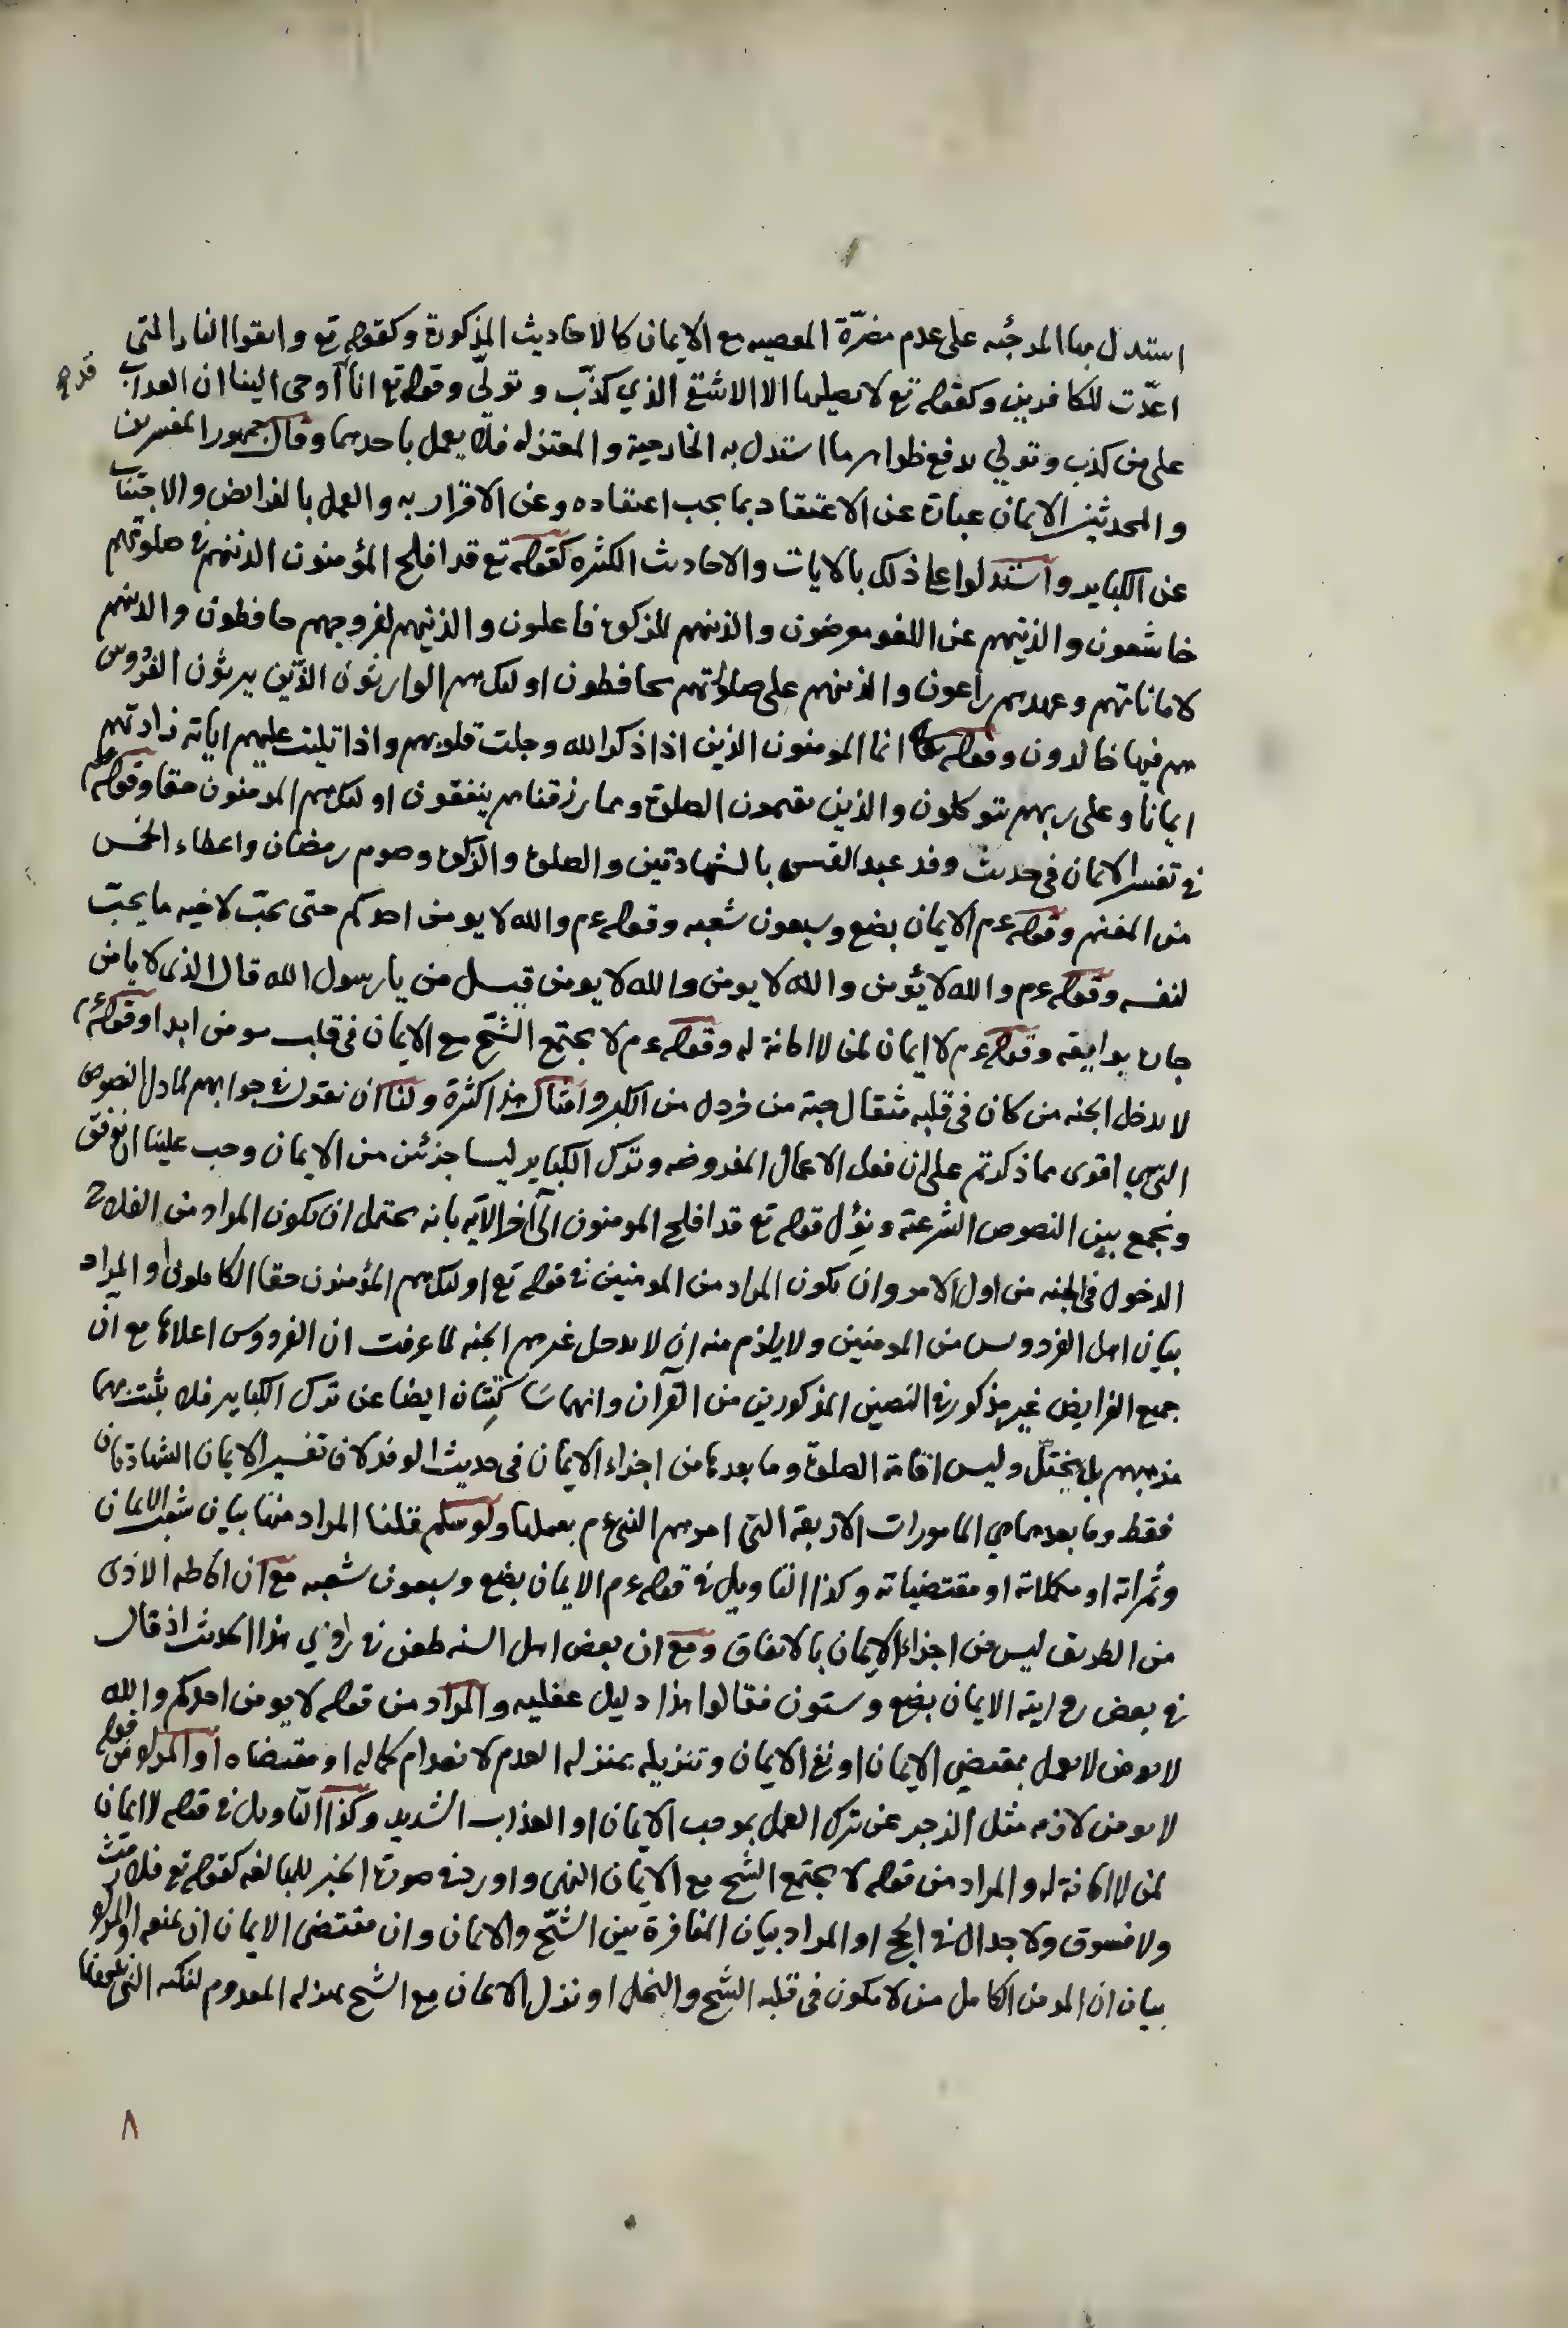 استدل بها المرجئه على عدم مضرّة المعصيه مع الايمان كالاحاديث المذكورة وكقوله تع واتقوا النار التي
اعدّت للكافرين وكقوله تع لا يصليها الا الاشقى الذي كذّب وتولّى وقوله تع انا اوحى الينا ان العذاب
قد
على من كذب وتولي يدفع ظواهر ما استدل به الخارجية والمعتزله فلا يعمل باحدهما وقال جمهور المفسرين
والمحدثين الايمان عبارة عن الاعتقاد بما يجب اعتقاده وعن الاقرار به والعمل بالفرايض والاجتناب
عن الكباير واستدلوا على ذلك بالايات والاحاديث الكثيره كقوله تع قد افلح المؤمنون الذينهم في صلوتهم
خاشعون والذينهم عن اللغو معرضون والذينهم للزكوة فاعلون والذينهم لفروجهم حافظون والذينهم
لاماناتهم وعهدهم راعون والذينهم على صلواتهم يحافظون اولئك هم الوارثون الذين يرثون الفردوس
هم فيها خالدون وقوله تعالى انما المومنون الذين اذا ذكر الله وجلت قلوبهم واذا تليت عليهم اياته زادتهم
ايمانا وعلى ربهم يتوكلون والذين يقيمون الصلوة ومما رزقناهم ينفقون اولئك هم المومنون حقا وقوله عم
في تفسير الايمان في حديث وفد عبد القيس بالشهادتين والصلوة والزكوة وصوم رمضان واعطاء الخمس
من المغنم وقوله عم الايمان بضع وسبعون شعبه وقوله عم والله لا يومن احدكم حتى يحبّ لاخيه ما يحبّ
لنفسه وقوله عم والله لا يؤمن والله لا يومن والله لا يومن قيل من يا رسول الله قال الذي لا يامن
جاره بوايقه وقوله عم لا ايمان لمن لا امانة له وقوله عم لا يجتمع الشحّ مع الايمان في قلب مومن ابدا وقوله عم
لا يدخل الجنه من كان في قلبه مثقال حبة من خردل من الكبر وامثال هذا كثرة ولنا ان نقول في جوابهم لما دل النصوص
التي هي اقوى مما ذكرتم على ان فعل الاعمال المفروضه وترك الكباير ليسا جزئين من الايمان وجب علينا ان نوفق
ونجمع بين النصوص الشرعية ونؤل قوله تع قد افلح المومنون الى آخر الآيه بانه يحتمل ان يكون المراد من الفلاح
الدخول في الجنه من اول الامر وان يكون المراد من المومنين في قوله تع اولئك هم المؤمنون حقا الكاملون او المراد
بيان اهل الفردوس من المومنين ولا يلزم منه ان لا يدخل غيرهم الجنه لما عرفت ان الفردوس اعلاها مع ان
جميع الفرايض غير مذكور في النصين المذكورين من القرآن وانهما ساكتان ايضا عن ترك الكباير فلا يثبت بهما
مذهبهم بل يختلّ وليس اقامة الصلوة وما بعدها من اجزاء الايمان في حديث الوفد لان تفسير الايمان الشهادتان
فقط وما بعدهما هي المامورات الاربعة التي امرهم النبي عم بعملها ولو سلم قلنا المراد منها بيان شعب الايمان
وثمراته او مكملاته او مقتضياته وكذا التاويل في قوله عم الايمان بضع وسبعون شعبه مع ان اماطه الاذى
من الطريق ليس من اجزاء الايمان بالاتفاق ومع ان بعض اهل السنه طعن في راوي هذا الحديث اذ قال
في بعض روايته الايمان بضع وستون فقالوا هذا دليل عقليه والمراد من قوله لا يومن احدكم والله
لا يومن لا يعمل بمقتضي الايمان او نفي الايمان وتنزيله بمنزله العدم لانعدام كماله او مقتضاه او المراد من قوله
لا يومن لازمه مثل الزجر عن ترك العمل بموجب الايمان او العذاب الشديد وكذا التاويل في قوله لا ايمان
لمن لا امانة له والمراد من قوله لا يجتمع الشح مع الايمان النهي واورد في صورة الخبر للمبالغه كقوله تع فلا رفث
ولا فسوق ولا جدال في الحج او المراد بيان المنافرة بين الشحّ والايمان وان مقتضى الايمان ان يمنعه او المراد
بيان ان المومن الكامل من لا يكون في قلبه الشح والبخل او نزل الايمان مع الشح بمنزله المعدوم لنكته التي
٨